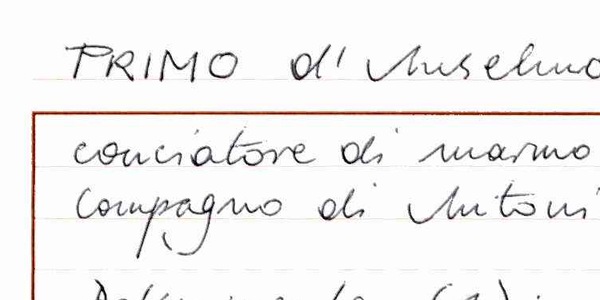 PRIMO d' Anselmo
conciatore di marmo
Compagno di Antoni